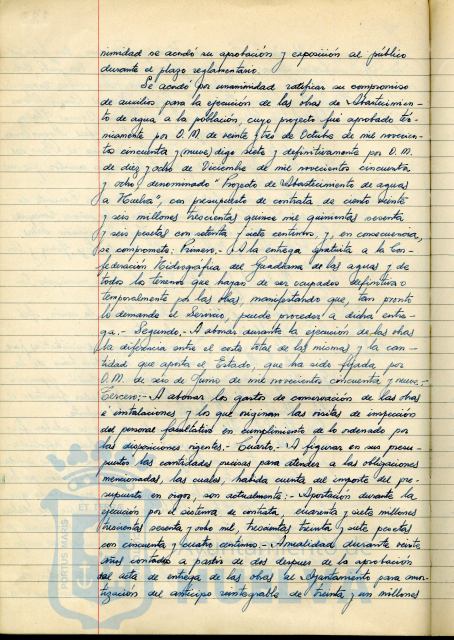 nimidad se acordó su aprobación y exposición al público
durante el plazo reglamentario.
Se acordó por unanimidad ratificar su compromiso
de auxilios para la ejecución de las obras de Abastecimien-
to de agua a la población, cuyo proyecto fué aprobado téc-
nicamente por O. M. de veinte y tres de Octubre de mil novecien-
tos cincuenta y (nueve) digo siete y definitivamente por O. M.
de diez y ocho de Diciembre de mil novecientos cincuenta
y ocho, denominado "Proyecto de Abastecimiento de aguas
a Huelva", con presupuesto de contrata de ciento veinte
y seis millones trescientas quince mil quinientas sesenta
y seis pesetas con setenta y siete céntimos, y, en consecuencia,
se compromete: Primero.- A la entrega gratuita a la Con-
federación Hidrográfica del Guadiana de las aguas y de
todos los terrenos que hayan de ser ocupados definitiva o
temporalmente por las obras, manifestando que, tan pronto
lo demande el Servicio, puede procederse a dicha entre-
ga.- Segundo.- A abonar durante la ejecución de las obras
la diferencia entre el coste total de las mismas y la can-
tidad que aporta el Estado, que ha sido fijada, por
O. M. de seis de Junio de mil novecientos cincuenta y nueve.-
Tercero:- A abonar los gastos de conservación de las obras
é instalaciones y los que originan las visitas de inspección
del personal facultativo en cumplimiento de lo ordenado por
las disposiciones vigentes.- Cuarto.- A figurar en sus presu-
puestos las cantidades precisas para atender a las obligaciones
mencionadas, las cuales, habida cuenta del importe del pre-
supuesto en vigor, son actualmente:- Aportación durante la
ejecución por el sistema de contrata, cuarenta y siete millones
trescientas sesenta y ocho mil, trescientas treinta y siete pesetas
con cincuenta y cuatro céntimos.- Anualidad durante veinte
años contados a partir de dos despues de la aprobación
del acta de entrega de las obras al Ayuntamiento para amor-
tización del anticipo reintegrable de treinta y un millones